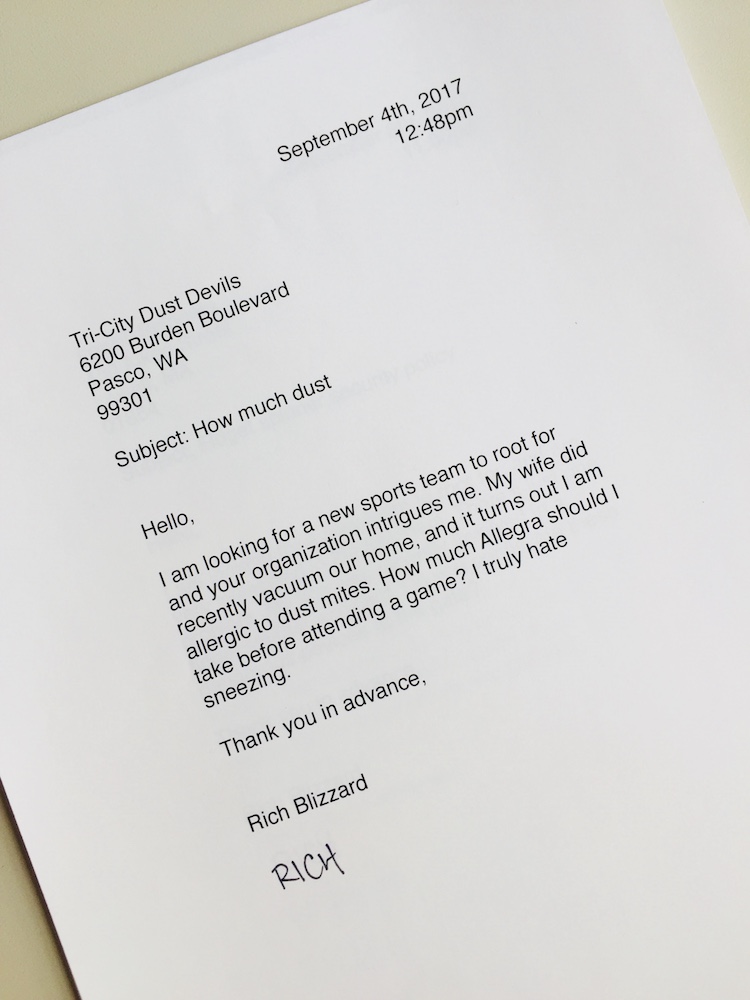 September 4th, 2017
12:48pm
Tri-City Dust Devils
6200 Burden Boulevard
Pasco, WA
99301
Subject: How much dust
Hello,
I am looking for a new sports team to root for
and your organization intrigues me. My wife did
recently vacuum our home, and it turns out I am
allergic to dust mites. How much Allegra should I
take before attending a game? I truly hate
sneezing.
Thank you in advance,
Rich Blizzard
RICH